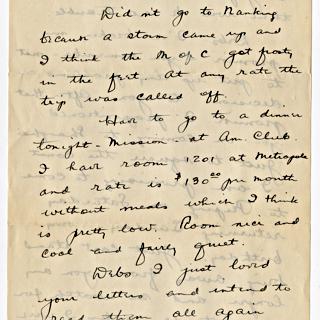 Did n't go to Nanking
because a storm came up and
I think the M of C got frosty
in the feet. At any rate the
trip was called off.
Have to go to a dinner
tonight - Mission - at Am. Club
I have room 1201 at Metropole
and rate is $130.00 per month
without meals which I think
is pretty low. Room nice and
cool and fairly quiet.
Debs I just loved
your letters and intend to
read them all again